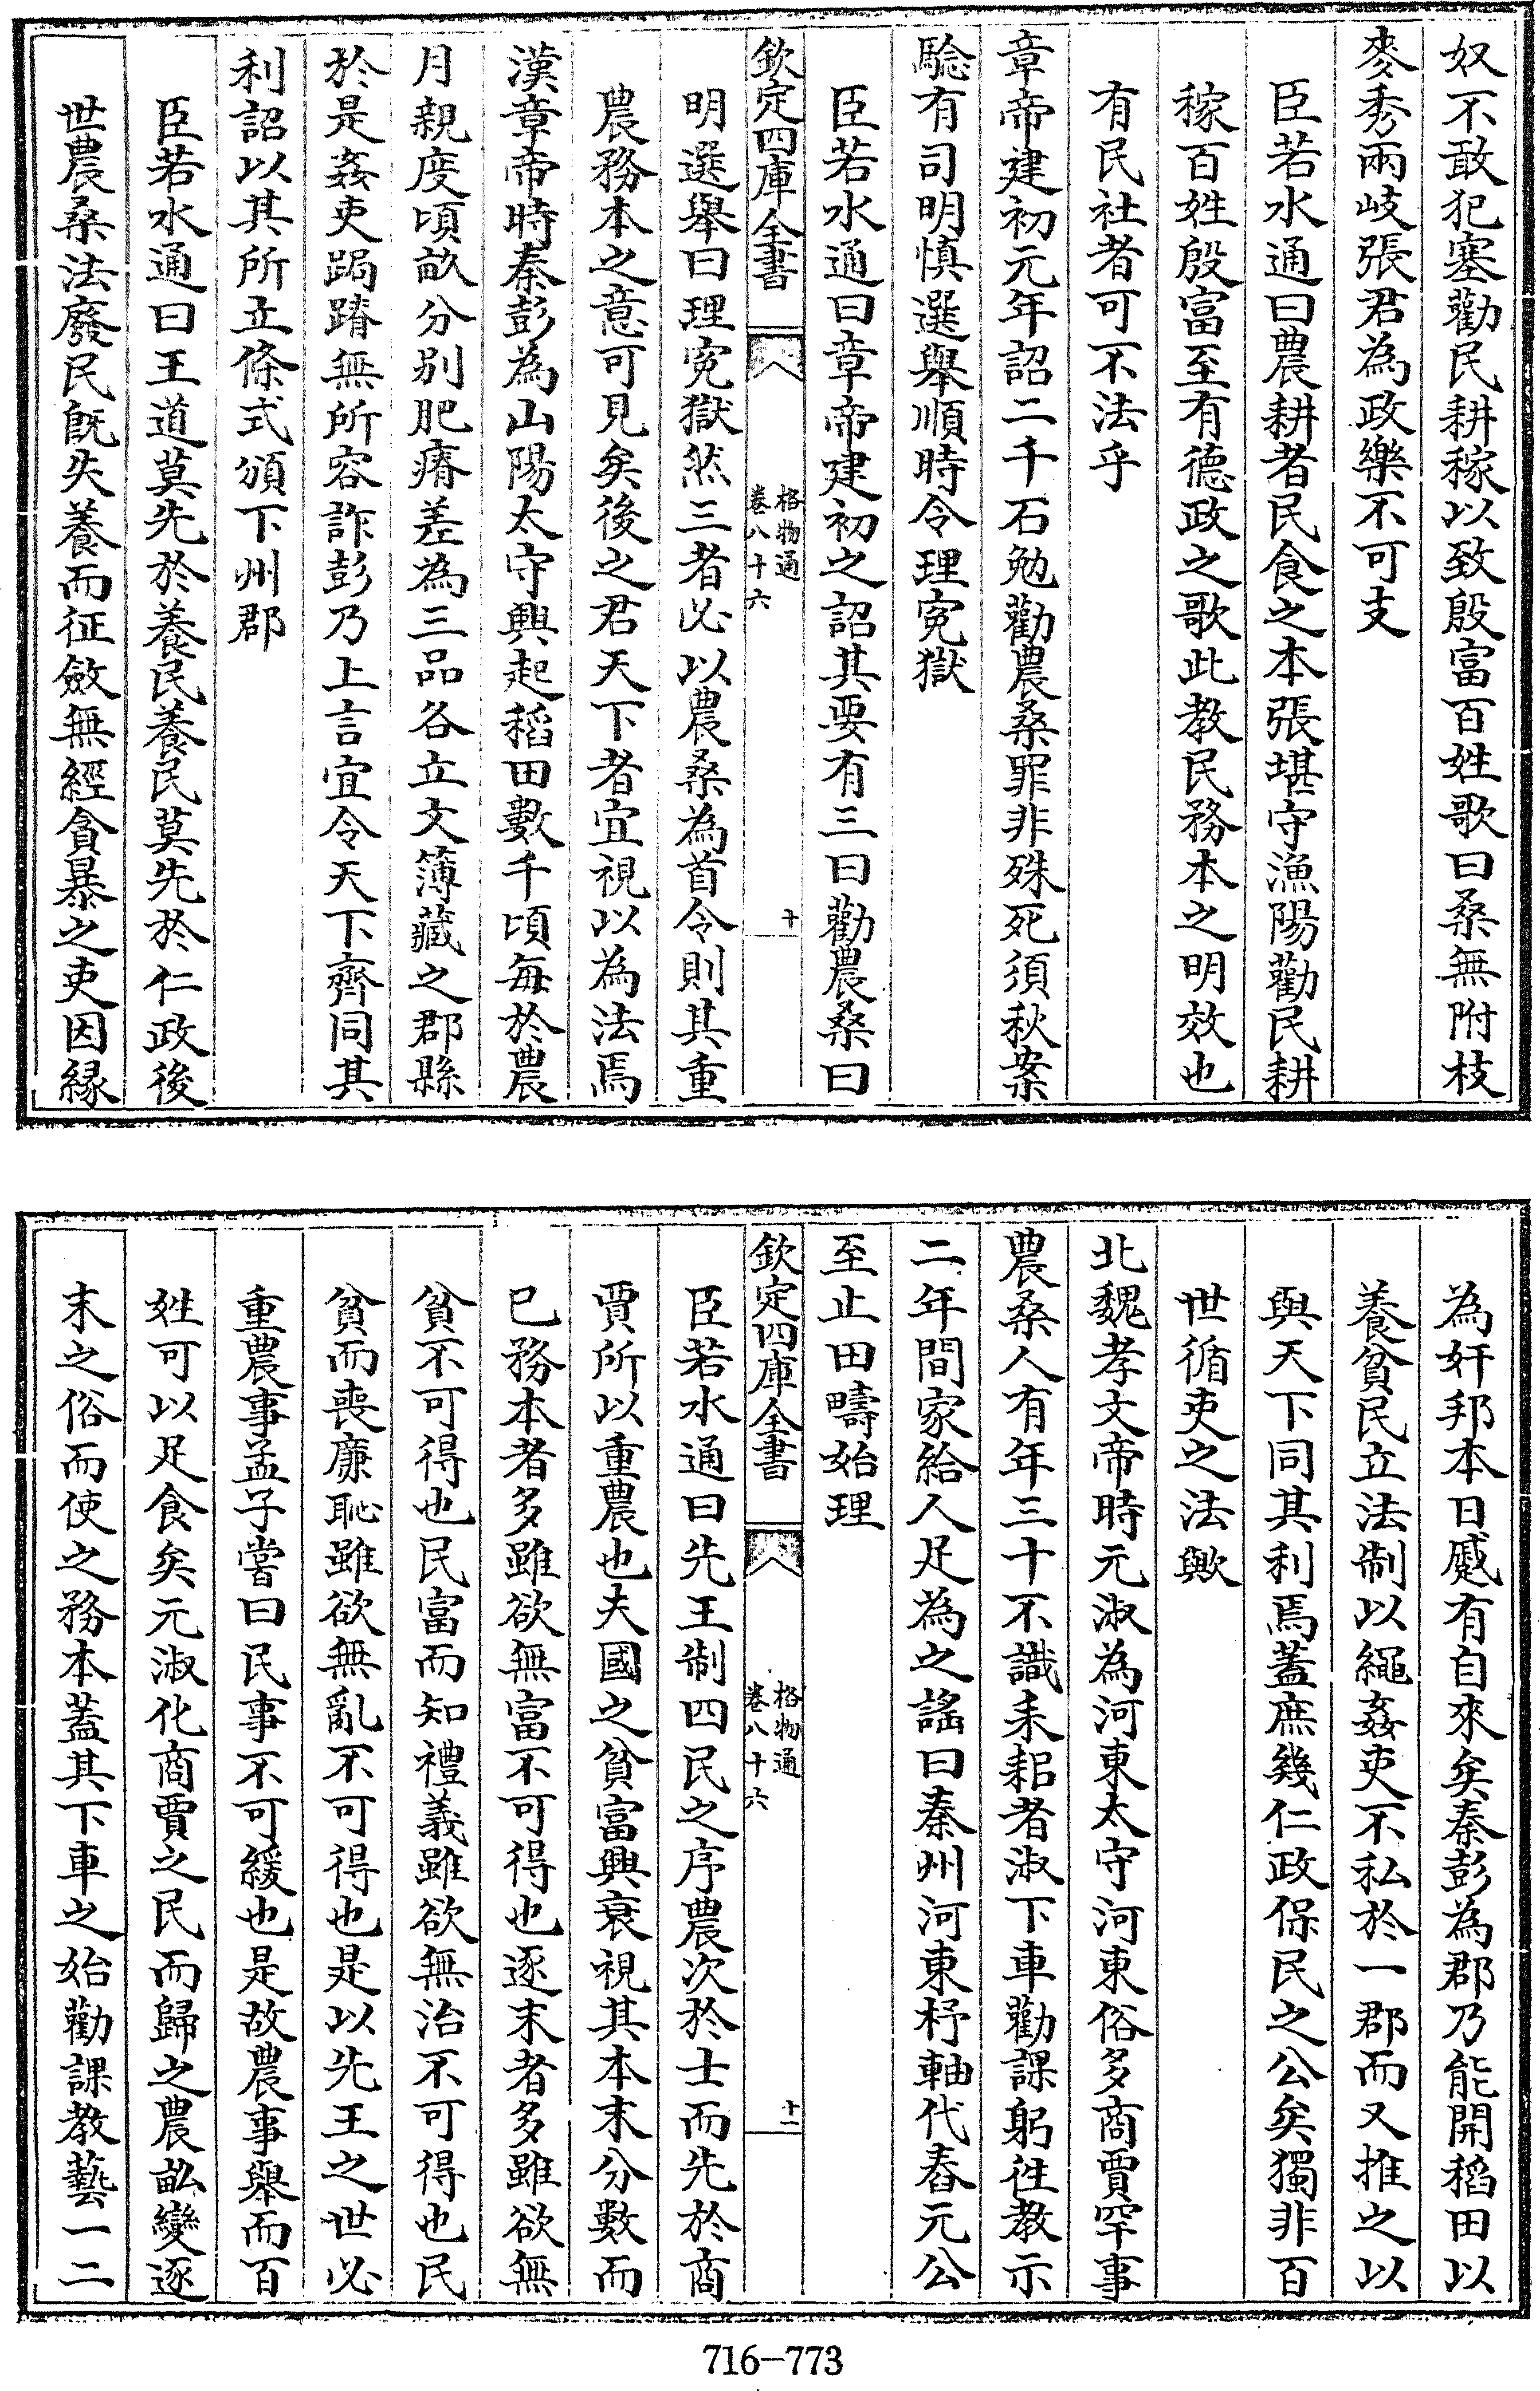 奴不敢犯塞勸民耕稼以致殷富百姓歌曰桑無附枝
麥秀兩岐張君為政樂不可支
臣若水通曰農耕者民食之本張堪守漁陽勸民耕
稼百姓殷富至有德政之歌此教民務本之明效也
有民社者可不法乎
章帝建初元年詔二千石勉勸農桑罪非殊死須秋案
驗有司明慎選舉順時令理寃獄
臣若水通曰章帝建初之詔其要有三曰勸農桑曰
欽定四庫全書
格物通
卷八十六
十
明選舉曰理寃獄然三者必以農桑為首令則其重
農務本之意可見矣後之君天下者宜視以為法焉
漢章帝時秦彭為山陽太守興起稻田數千頃每於農
月親度頃畝分别肥瘠差為三品各立文簿藏之郡縣
於是姦吏跼蹐無所容詐彭乃上言宜令天下齊同其
利詔以其所立條式頒下州郡
臣若水通曰王道莫先於養民養民莫先於仁政後
世農桑法廢民既失養而征斂無經貪暴之吏因緣
為奸邦本日蹙有自來矣秦彭為郡乃能開稻田以
養貧民立法制以繩姦吏不私於一郡而又推之以
與天下同其利焉蓋庶幾仁政保民之公矣獨非百
世循吏之法歟
北魏孝文帝時元淑為河東太守河東俗多商賈罕事
農桑人有年三十不識耒耜者淑下車勸課躬徃教示
二年間家給人足為之謠曰秦州河東杼軸代舂元公
至止田疇始理
欽定四庫全書
格物通
卷八十六
十一
臣若水通曰先王制四民之序農次於士而先於商
賈所以重農也夫國之貧富興衰視其本末分數而
已務本者多雖欲無富不可得也逐末者多雖欲無
貧不可得也民富而知禮義雖欲無治不可得也民
貧而喪亷恥雖欲無亂不可得也是以先王之世必
重農事孟子嘗曰民事不可緩也是故農事舉而百
姓可以足食矣元淑化商賈之民而歸之農畝變逐
末之俗而使之務本蓋其下車之始勸課教藝一二
716-773